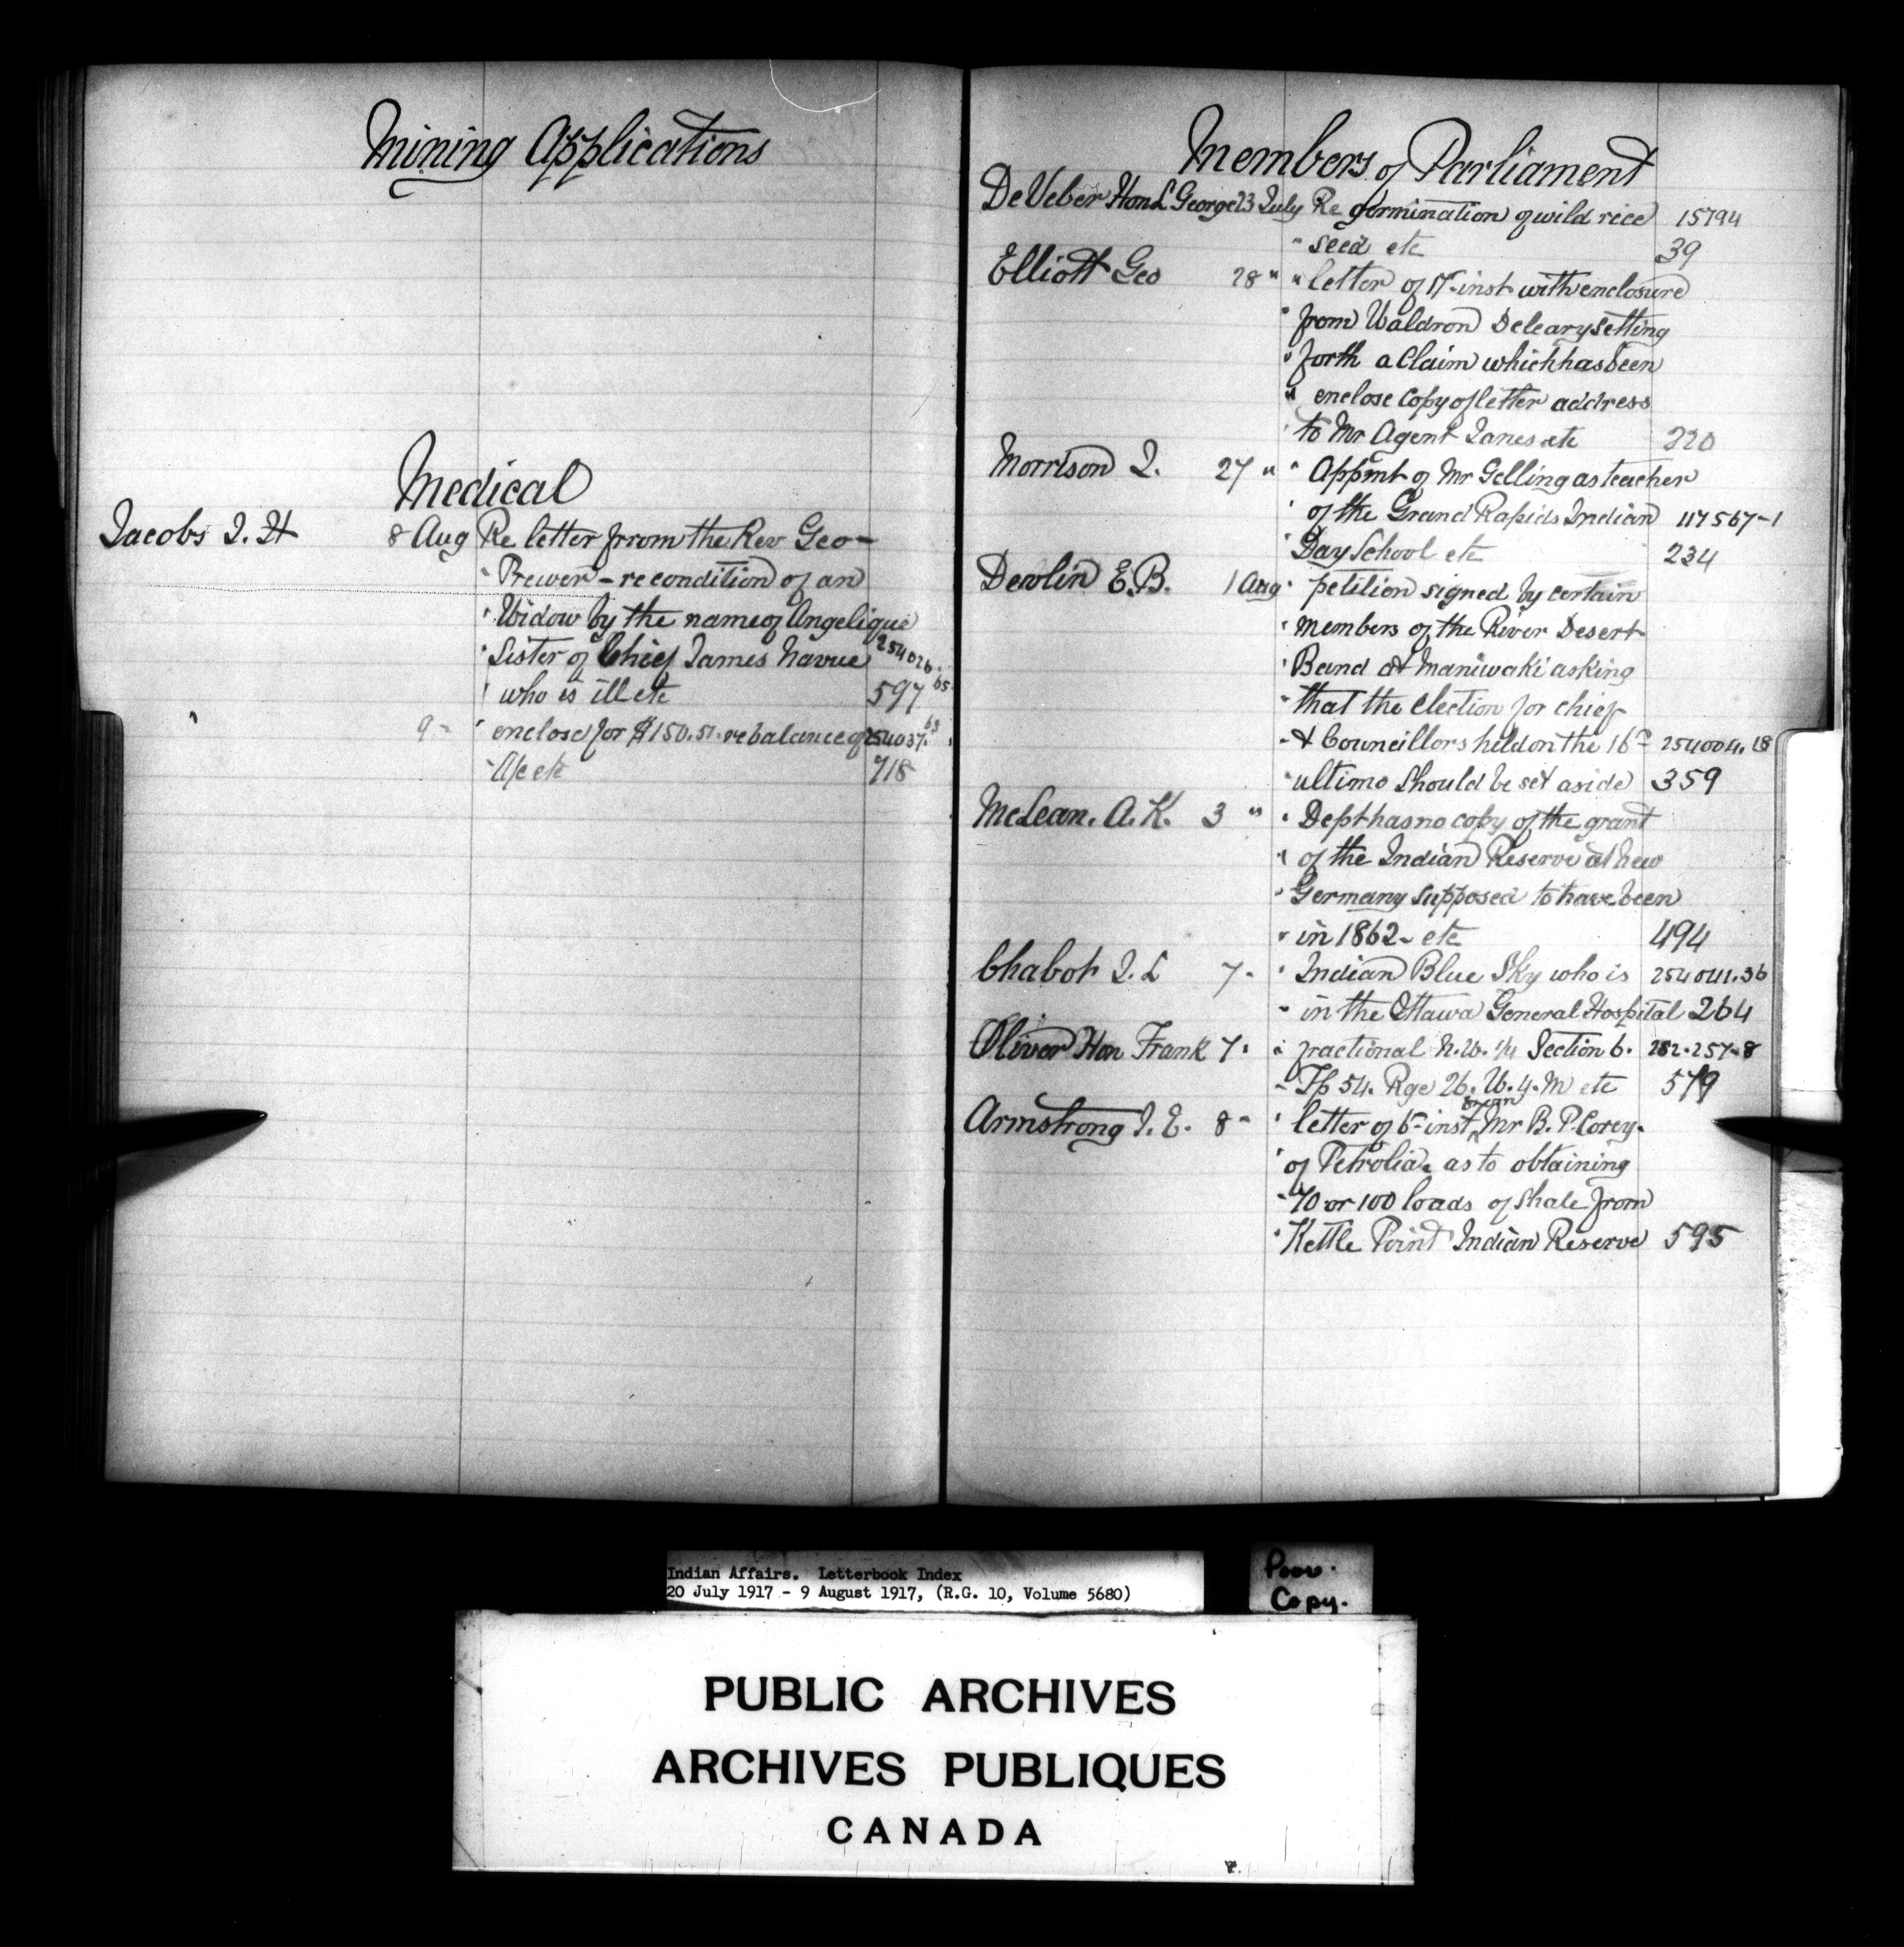 Mining Applications
Medical
Jacobs J. H 8 Aug Re letter from the Rev Geo-
" Prewer - re condition of an
" Widow by the name of Angelique
" Sister of Chief James Navue 254026.
" who is ill etc 597 65
9 " " enclose for $150.51. re balance of 254037. 63
" A/c etc 718
Members of Parliament
DeVeber Hon L George 23 July Re germination of wild rice 15794
" seed etc 39
Elliott Geo 28 " " letter of 17- inst with enclosure
" from Waldron Deleary setting
" forth a Claim which has been
" enclose Copy of letter address
" to Mr Agent Janes etc 220
Morrison J. 27 " " Appmt of Mr Gelling as teacher
" of the Grand Rapids Indian 117567-1
" Day School etc 234
Devlin E.B. 1 Aug " petition signed by certain
" members of the River Desert
" Band at Maniwaki asking
" that the election for chief
" & Councillors held on the 16th 254004.18
" ultimo should be set aside 359
McLean. A. K. 3 " " Dept has no copy of the grant
" of the Indian Reserve at New
" Germany supposed to have been
" in 1862- etc 494
Chabot J. L 7- " Indian Blue Sky who is 254041.36
" in the Ottawa General Hospital 264
Oliver Hon Frank 7. " fractional N.W. 1/4 Section 6. 252.257-8
" Tp 54. Rge 26. W. 4. M etc 579
Armstrong J. E. 8 " " letter of 6- inst from Mr B. P. Corey.
" of Petrolia. as to obtaining
" 70 or 100 loads of shale from
" Kettle Point Indian Reserve 595
Indian Affairs. Letterbook Index
20 July 1917 - 9 August 1917, (R.G. 10, Volume 5680)
Poor.
Copy.
PUBLIC ARCHIVES
ARCHIVES PUBLIQUES
CANADA